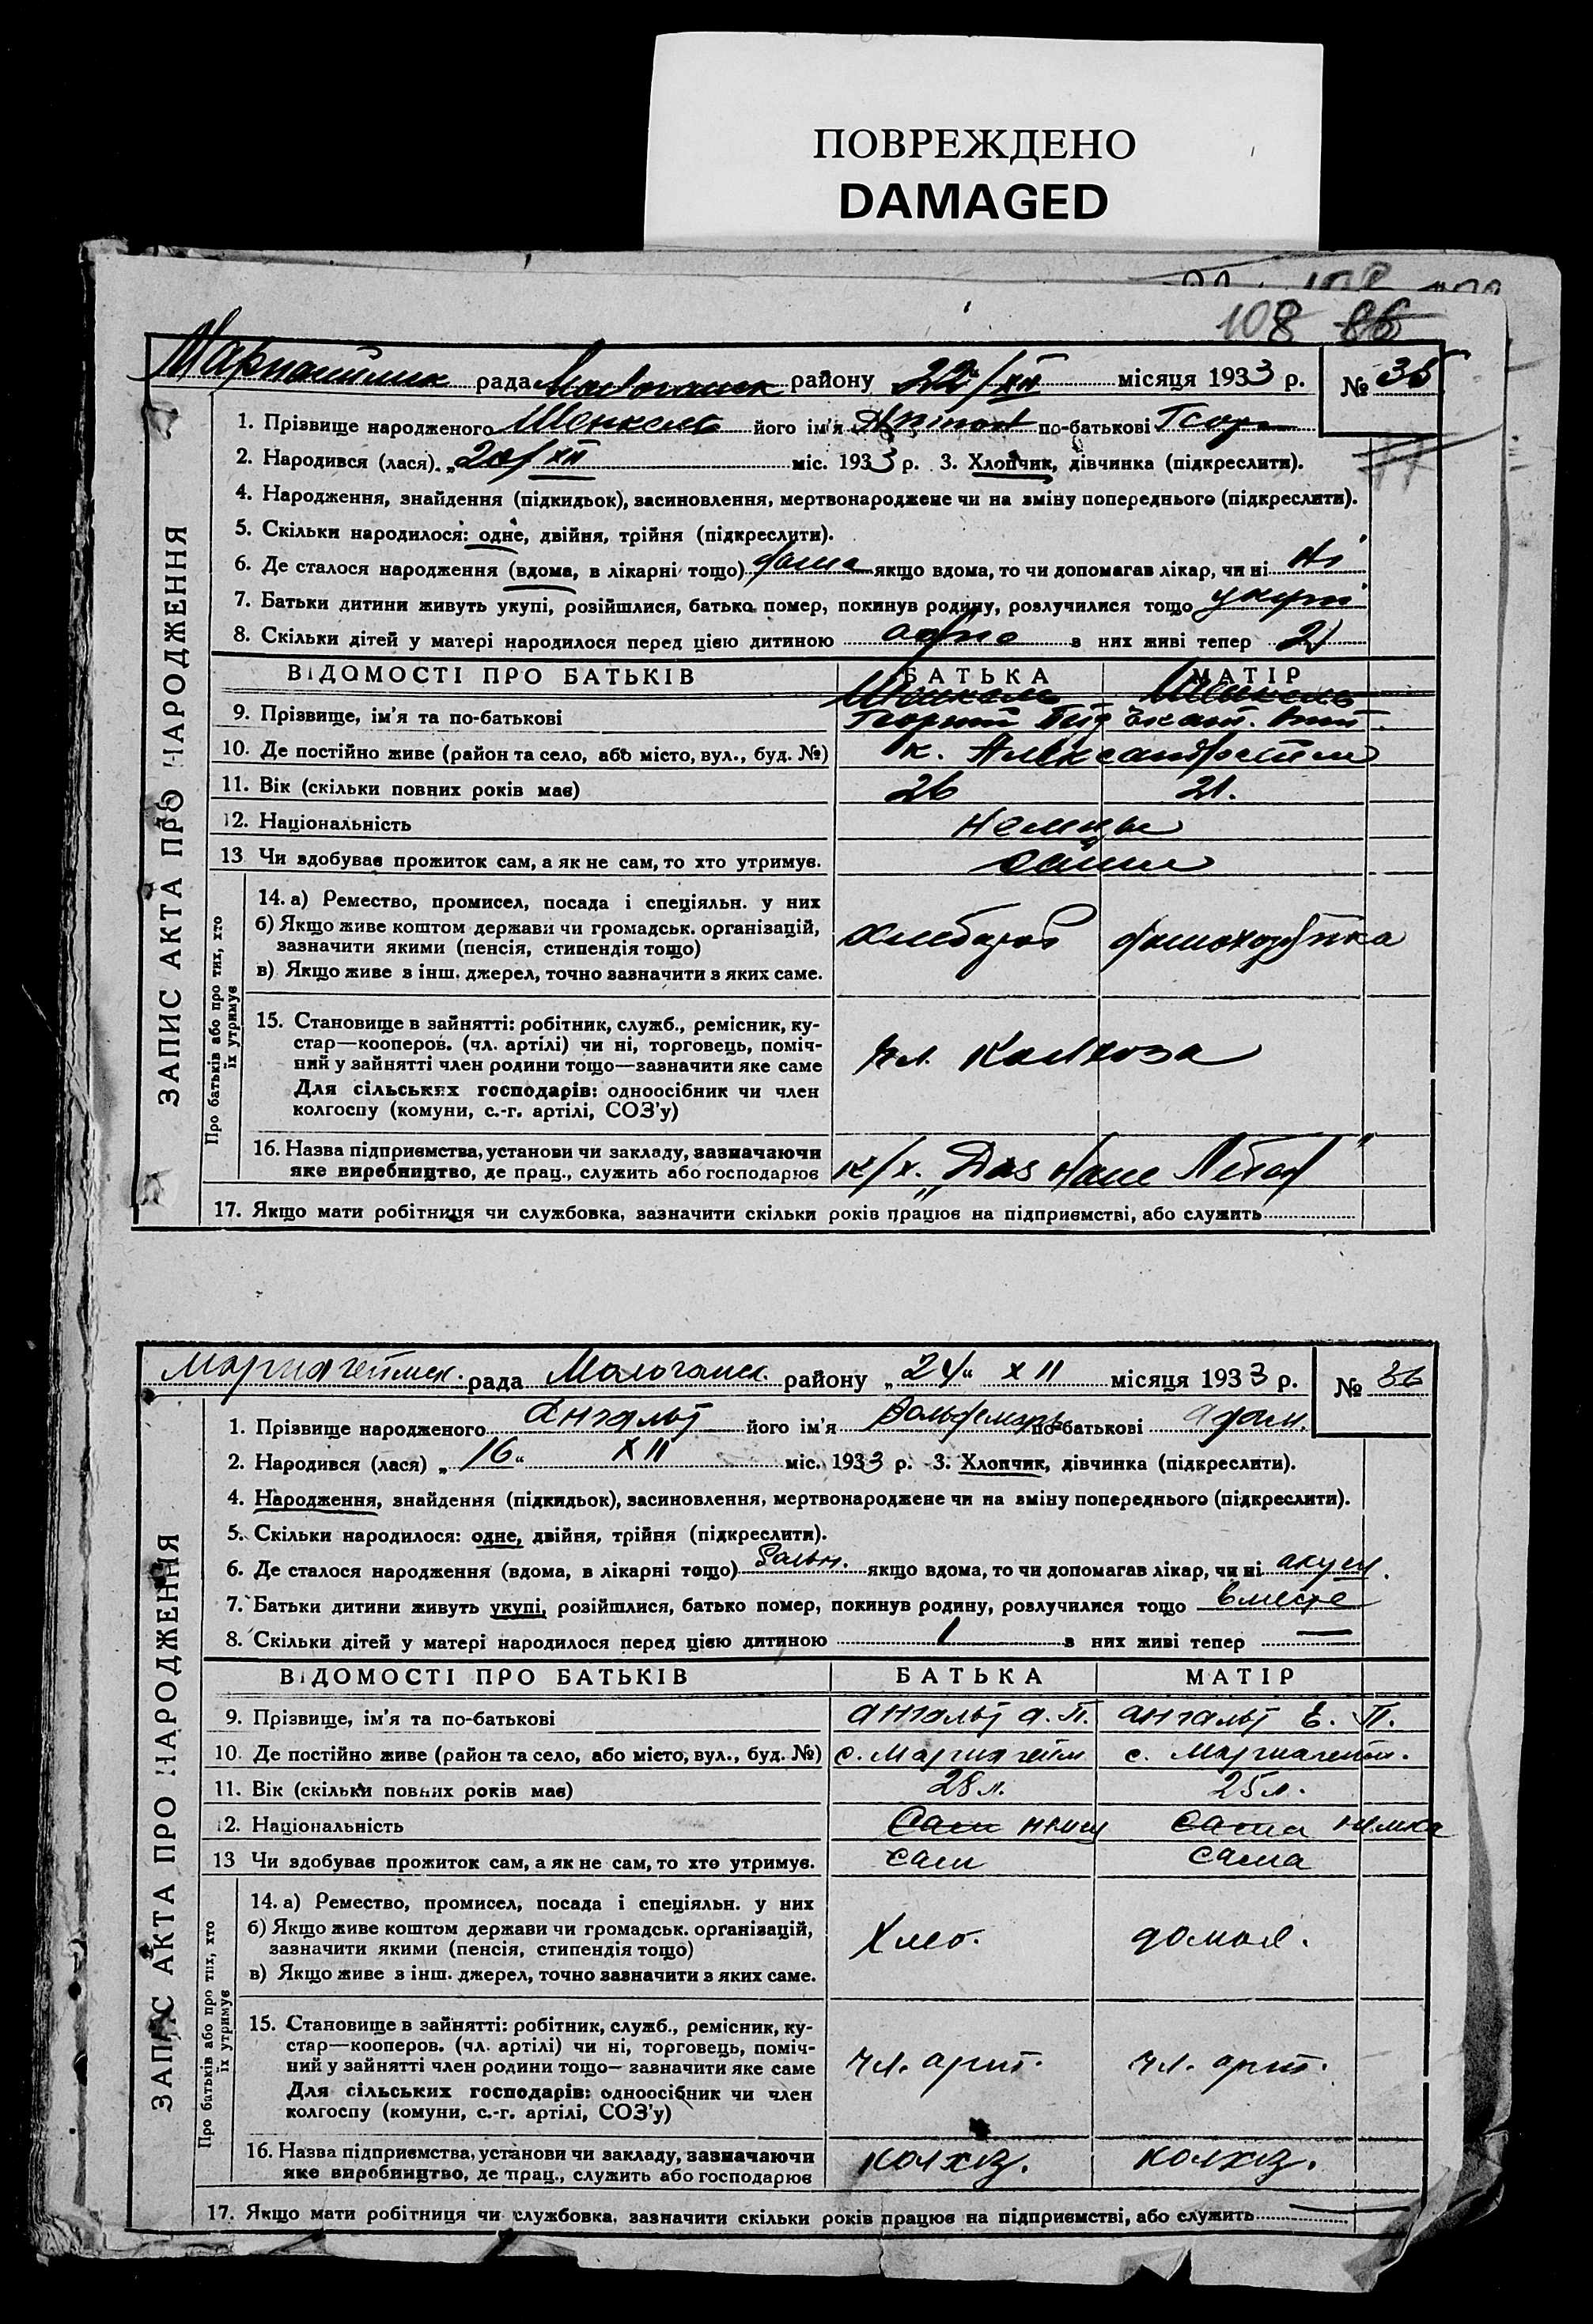 ПОВРЕЖДЕНО
DAMAGED
108 86
рада району 22/XII місяця 1933 р. № 35
1. Прізвище народженого Шенкель його ім'я по-батькові Геор
2. Народився (лася) „20/XII міс. 1933 р. 3. Хлопчик, дівчинка (підкреслити).
4. Народження, знайдення (підкидьок), засиновлення, мертвонароджене чи на зміну попереднього (підкреслити).
5. Скільки народилося: одне, двійня, трійня (підкреслити).
6. Де сталося народження (вдома, в лікарні тощо) дома якщо вдома, то чи допомагав лікар, чи ні Ні
7. Батьки дитини живуть укупі, розійшлися, батько помер, покинув родину, розлучилися тощо укупі
8. Скільки дітей у матері народилося перед цією дитиною одне з них живі тепер 2)
ВІДОМОСТІ ПРО БАТЬКІВ БАТЬКА МАТІР
Шенкель Шенкель
9. Прізвище, ім'я та по-батькові Георгий
10. Де постійно живе (район та село, або місто, вул., буд. №) к. Александрогейм
11. Вік (скільки повних років має) 26 21.
12. Національність Немцы
13 Чи здобуває прожиток сам, а як не сам, то хто утримує. сами
14. а) Ремество, промисел, посада і спеціяльн. у них
б) Якщо живе коштом держави чи громадськ. організацій,
зазначити якими (пенсія, стипендія тощо) хлебороб домохозяйка
в) Якщо живе з інш. джерел, точно зазначити з яких саме.
15. Становище в зайнятті: робітник, служб., ремісник, ку-
стар—кооперов. (чл. артілі) чи ні, торговець, поміч-
ний у зайнятті член родини тощо—зазначити яке саме чл. колхоза
Для сільських господарів: одноосібник чи член
колгоспу (комуни, с.-г. артілі, СОЗ'у)
16. Назва підприємства, установи чи закладу, зазначаючи
яке виробництво, де прац., служить або господарює к/х. „Das Neue
17. Якщо мати робітниця чи службовка, зазначити скільки років працює на підприємстві, або служить
ЗАПИС АКТА ПРО НАРОДЖЕННЯ
Про батьків або про тих, хто
їх утримує
Мариагеймск. рада Молочанск. району „24“ XII місяця 1933 р. № 36
1. Прізвище народженого Ангальт його ім'я Вольдемарь по-батькові Адам.
2. Народився (лася) „16“ XII міс. 1933 р. 3. Хлопчик, дівчинка (підкреслити).
4. Народження, знайдення (підкидьок), засиновлення, мертвонароджене чи на зміну попереднього (підкреслити).
5. Скільки народилося: одне, двійня, трійня (підкреслити).
6. Де сталося народження (вдома, в лікарні тощо) больн. якщо вдома, то чи допомагав лікар, чи ні акуш.
7. Батьки дитини живуть укупі, розійшлися, батько помер, покинув родину, розлучилися тощо вместе
8. Скільки дітей у матері народилося перед цією дитиною 1 з них живі тепер —
ВІДОМОСТІ ПРО БАТЬКІВ БАТЬКА МАТІР
9. Прізвище, ім'я та по-батькові Ангальт А. П. Ангальт Е. П.
10. Де постійно живе (район та село, або місто, вул., буд. №) с. Мариагейм с. Мариагейм.
11. Вік (скільки повних років має) 28 л. 25 л.
12. Національність Сам немец Сама немка
13 Чи здобуває прожиток сам, а як не сам, то хто утримує. сам сама
14. а) Ремество, промисел, посада і спеціяльн. у них
б) Якщо живе коштом держави чи громадськ. організацій,
зазначити якими (пенсія, стипендія тощо) Хлеб. домох.
в) Якщо живе з інш. джерел, точно зазначити з яких саме.
15. Становище в зайнятті: робітник, служб., ремісник, ку-
стар—кооперов. (чл. артілі) чи ні, торговець, поміч-
ний у зайнятті член родини тощо—зазначити яке саме чл. арт. чл. арт.
Для сільських господарів: одноосібник чи член
колгоспу (комуни, с.-г. артілі, СОЗ'у)
16. Назва підприємства, установи чи закладу, зазначаючи
яке виробництво, де прац., служить або господарює колхоз. колхоз.
17. Якщо мати робітниця чи службовка, зазначити скільки років працює на підприємстві, або служить
ЗАПИС АКТА ПРО НАРОДЖЕННЯ
Про батьків або про тих, хто
їх утримує